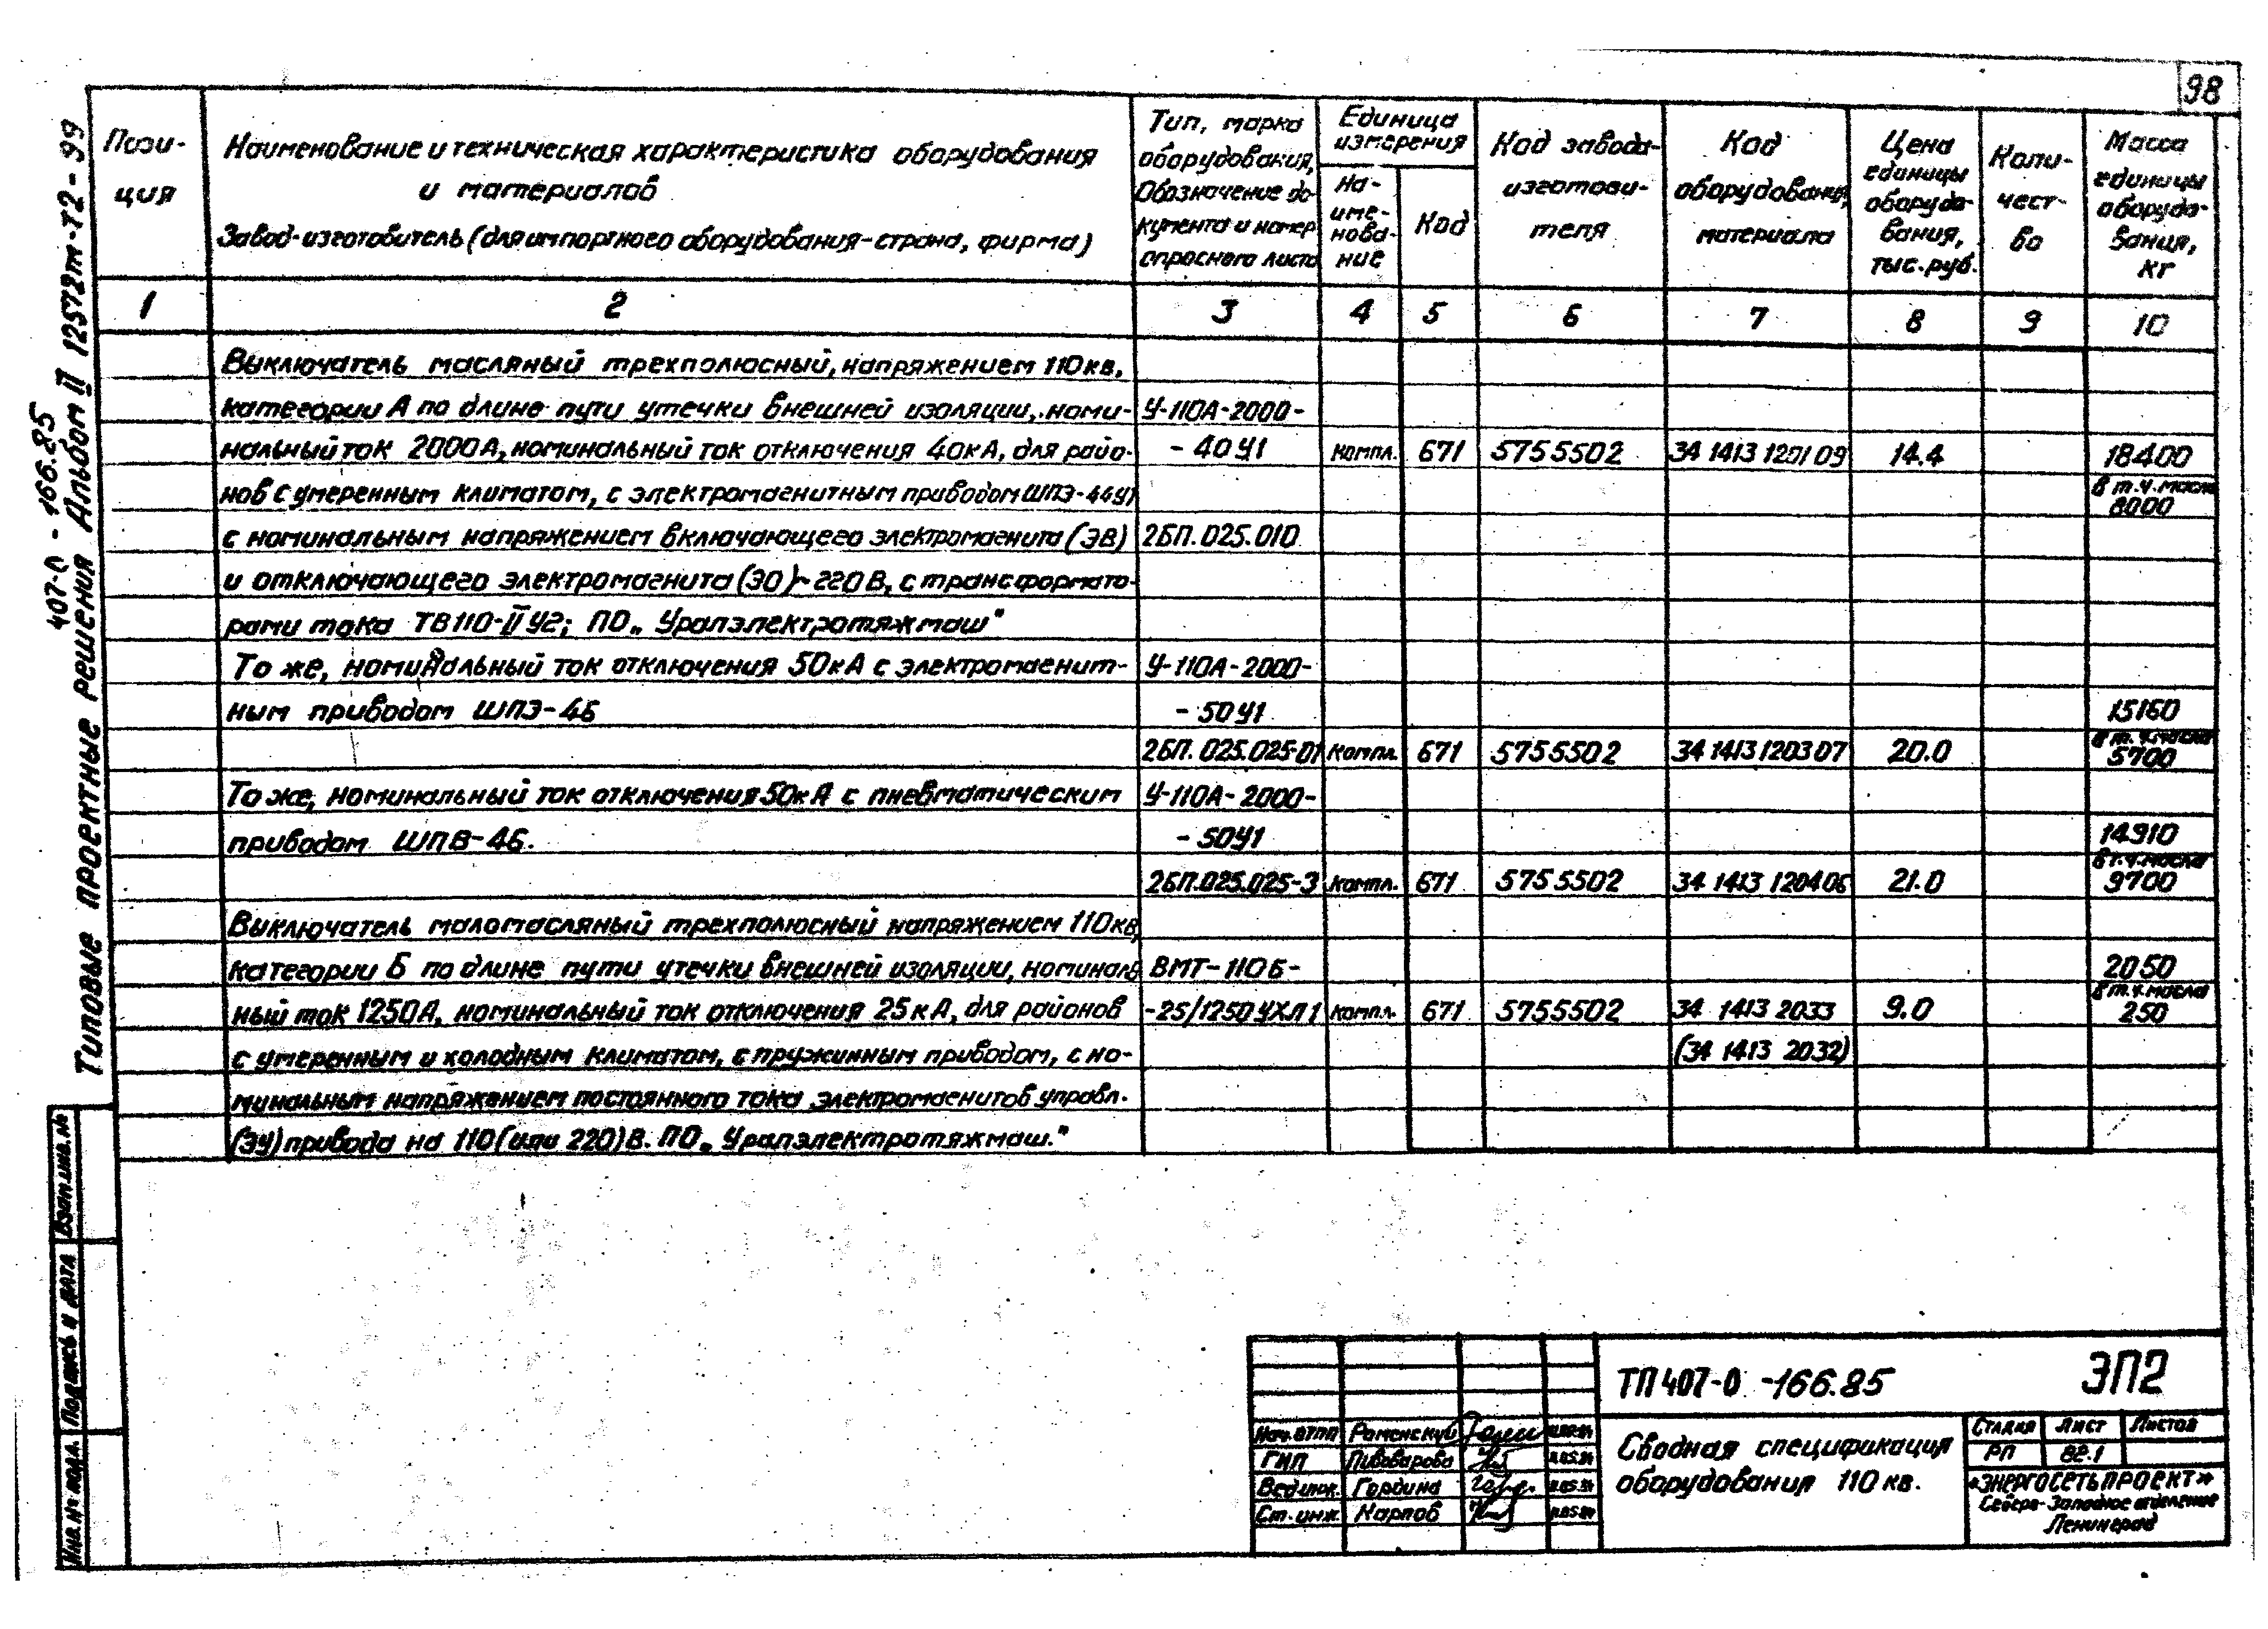 98
407-0 - 166.85
Типовые проектные решения Альбом II 12572тм-т2-99
Пози-
ция
Наименование и техническая характеристика оборудования
и материалов
Завод-изготовитель (для импортного оборудования-страна, фирма)
Тип, марка
оборудования,
Обозначение до-
кумента и номер
опросного листа
Единица
измерения
На-
име-
нова-
ние
Код
Код завода-
изготови-
теля
Код
оборудования,
материала
Цена
единицы
оборудо-
вания,
тыс. руб.
Коли-
чест-
во
Масса
единицы
оборудо-
вания,
кг
1 2 3 4 5 6 7 8 9 10
Выключатель масляный трехполюсный, напряжением 110кв,
категории А по длине пути утечки внешней изоляции, номи- У-110А-2000-
нальный ток 2000А, номинальный ток отключения 40кА, для райо- - 40У1 компл. 671 5755502 34 1413 1201 09 14.4 18400
нов с умеренным климатом, с электромагнитным приводом ШПЭ-44У1 в т.ч. масла
8000
с номинальным напряжением включающего электромагнита (ЭВ) 2БП.025.010
и отключающего электромагнита (ЭО)-220В, с трансформато-
рами тока ТВ110-II У2; ПО „Уралэлектротяжмаш"
То же, номинальный ток отключения 50кА с электромагнит- У-110А-2000-
ным приводом ШПЭ-46 - 50У1 15160
2БП.025.025-01 компл. 671 5755502 34 1413 1203 07 20.0 в т.ч. масла
5700
То же, номинальный ток отключения 50кА с пневматическим У-110А-2000-
приводом ШПВ-46. - 50У1 14910
2БП.025.025-3 компл. 671 5755502 34 1413 1204 06 21.0 в т.ч. масла
9700
Выключатель маломасляный трехполюсный напряжением 110кв,
категории Б по длине пути утечки внешней изоляции, номиналь ВМТ-110Б- 2050
ный ток 1250А, номинальный ток отключения 25кА, для районов -25/1250УХЛ1 компл. 671 5755502 34 1413 2033 9.0 в т.ч. масла
250
с умеренным и холодным климатом, с пружинным приводом, с но- (34 1413 2032)
минальным напряжением постоянного тока электромагнитов управл.
(ЭУ) привода на 110 (или 220) В. ПО „Уралэлектротяжмаш."
Взам.инв.№
Подпись и дата
Инв.№ подл.
ТП 407-0 -166.85 ЭП2
Нач. ОТПП Роменский
ГИП Пивоварова
Вед.инж. Гордина
Ст. инж. Карпов
Сводная спецификация
оборудования 110 кв.
Стадия Лист Листов
РП 82.1
«ЭНЕРГОСЕТЬПРОЕКТ»
Северо-Западное отделение
Ленинград